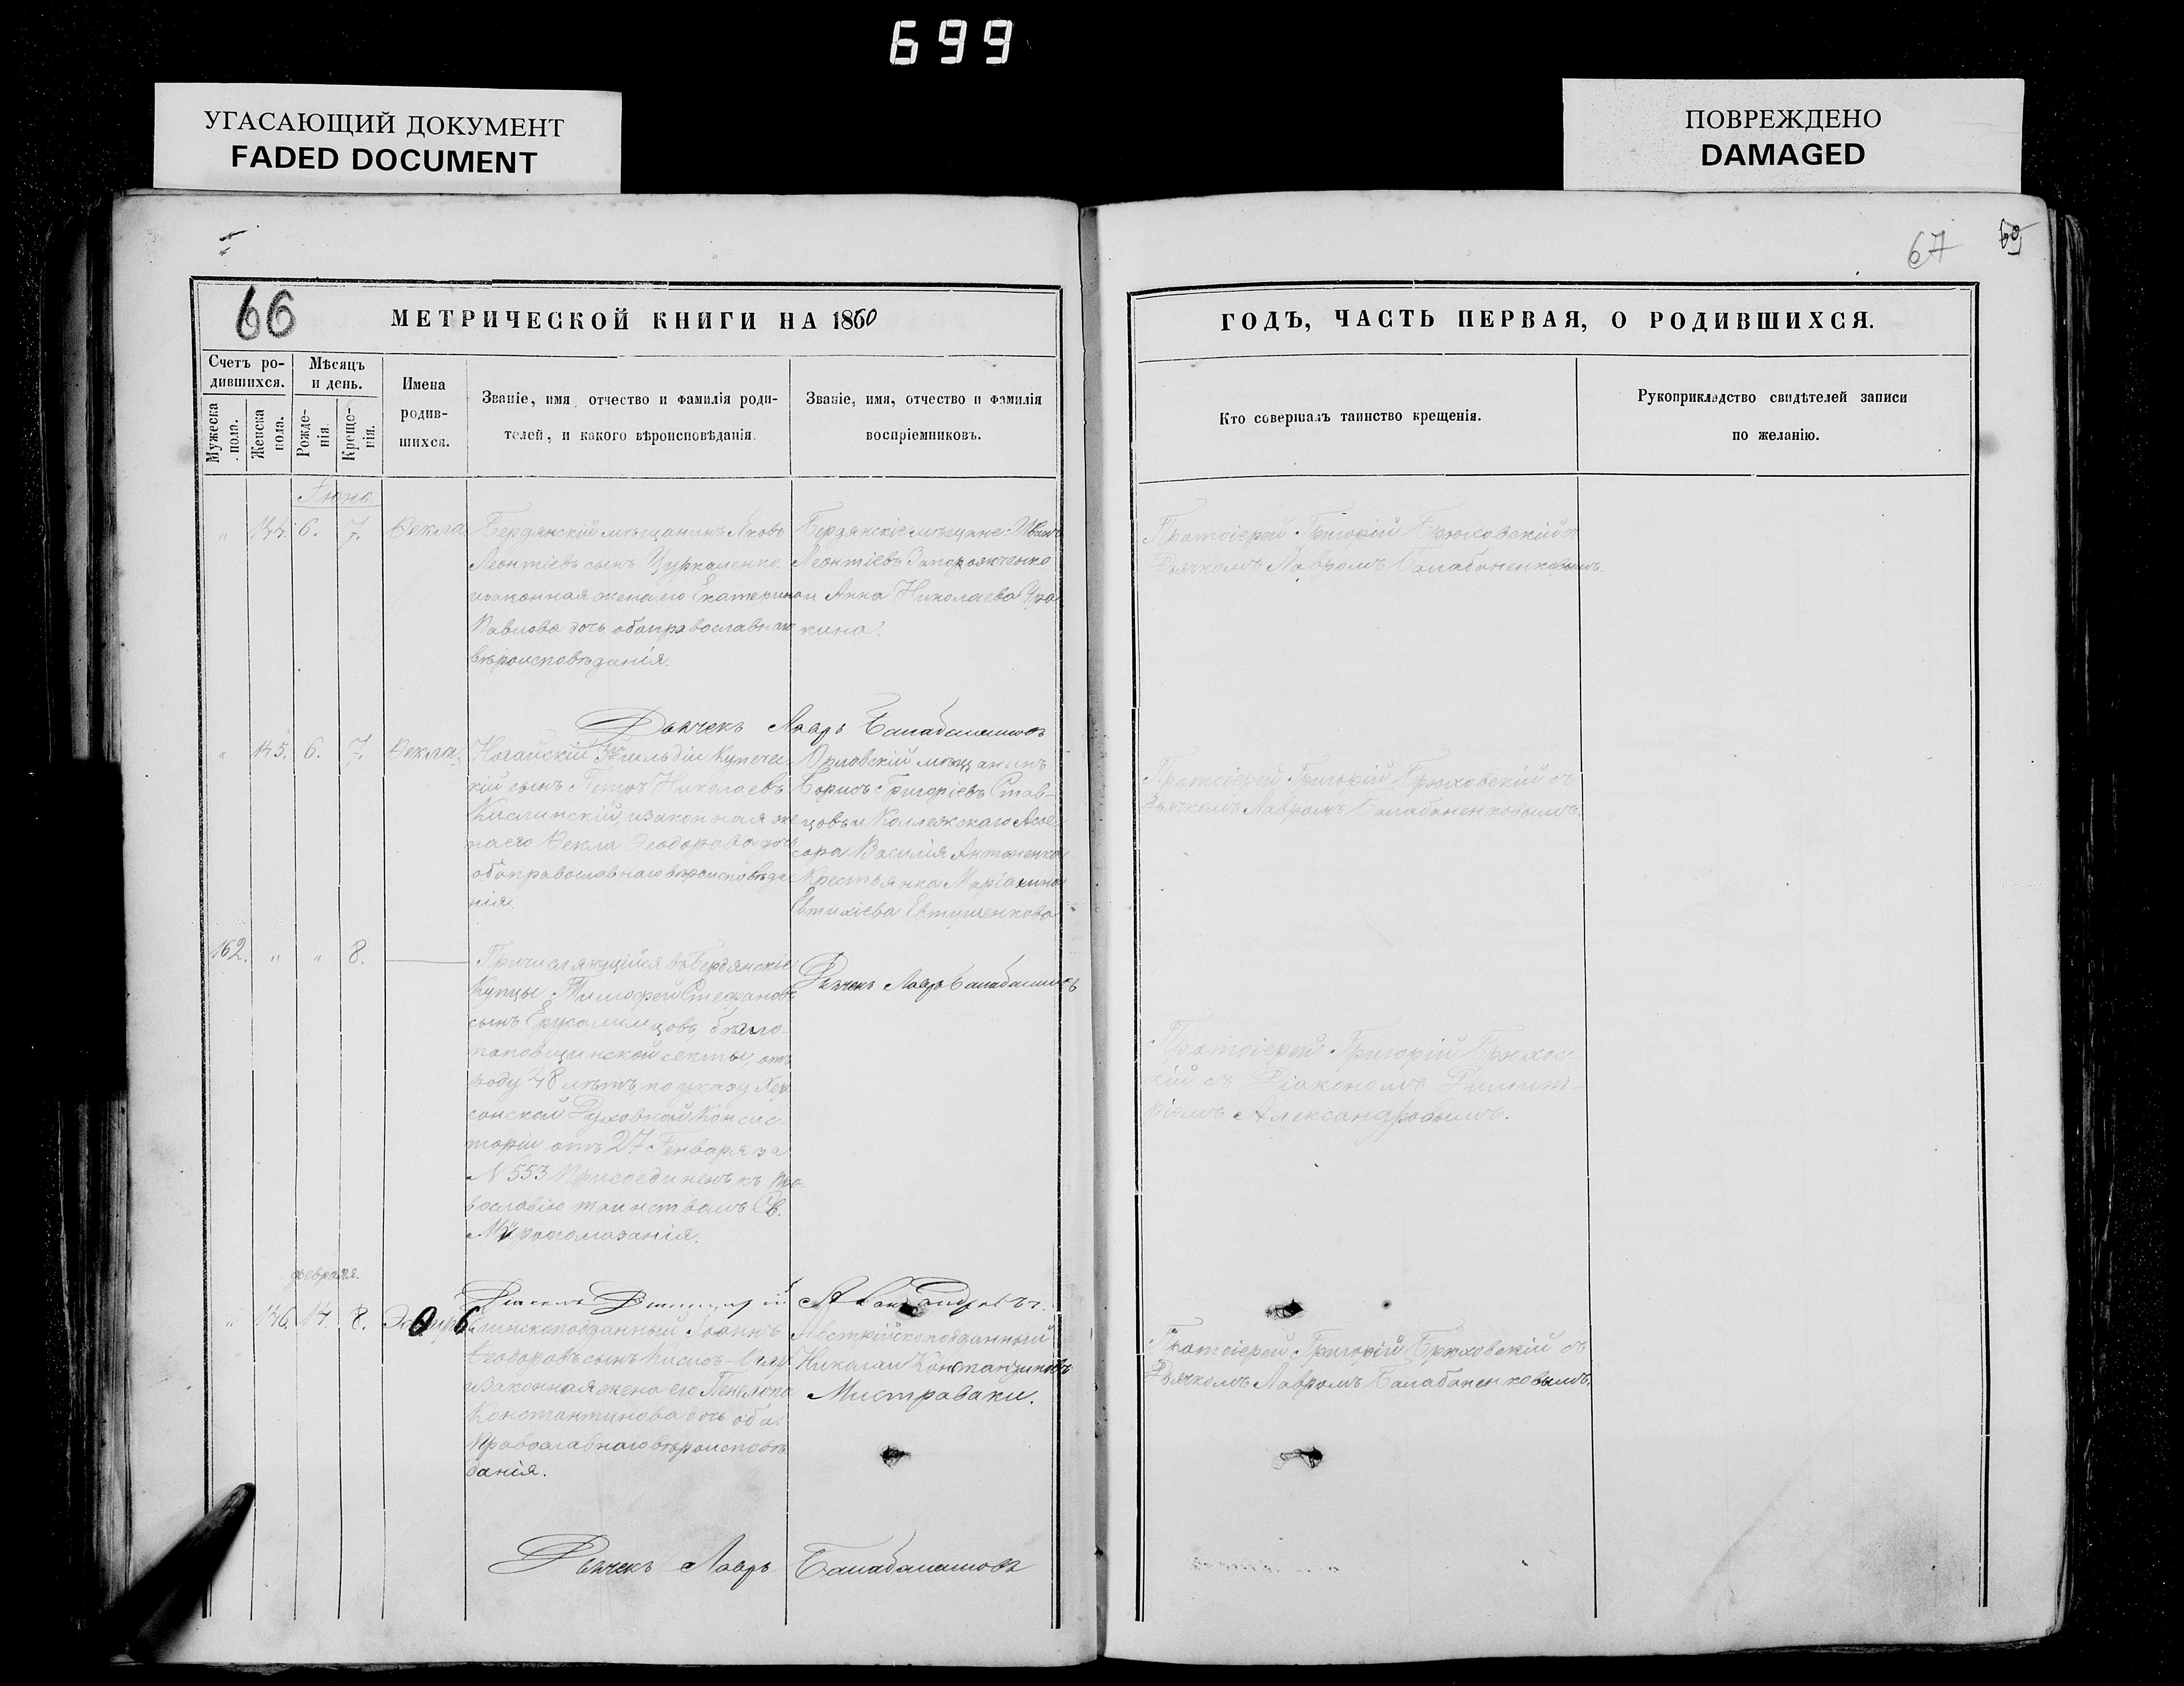 699
УГАСАЮЩИЙ ДОКУМЕНТ
FADED DOCUMENT
ПОВРЕЖДЕНО
DAMAGED
67
66
МЕТРИЧЕСКОЙ КНИГИ НА 1860
ГОДЪ, ЧАСТЬ ПЕРВАЯ, О РОДИВШИХСЯ.
Счетъ ро-
дившихся.
Мужеска пола.
Женска пола.
Мѣсяцъ
и день.
Рожде-
нія.
Креще-
нія.
Имена
родив-
шихся.
Званіе, имя, отчество и фамилія роди-
телей, и какого вѣроисповѣданія.
Званіе, имя, отчество и фамилія
воспріемниковъ.
Кто совершалъ таинство крещенія.
Рукоприкладство свидѣтелей записи
по желанію.
Іюнь
" 144. 6. 7. Ѳекла
Бердянскій мѣщанинъ Яковъ
Леонтіевъ сынъ Цуркаленко
и законная жена его Екатерина
Павлова дочь оба православнаго
вѣроисповѣданія.
Бердянскіе мѣщане: Иванъ
Леонтіевъ Запорожченко
и Анна Николаева
кина.
Протоіерей Григорій Брюховскій с
Дьячкомъ Лавромъ Балабаненковымъ.
Дьячекъ Лавръ
" 145. 6. 7. Ѳекла.
Ногайскій 3й гильдіи Купечес-
кій сынъ Петръ Николаевъ
Кислинскій, и законная же-
на его Ѳекла Ѳеодорова дочь
оба православнаго вѣроисповѣда-
нія.
Орловскій мѣщанинъ
Борисъ Григоріевъ Став-
цовъ и Коллежскаго Ассе-
сора Василія Антоненко
Крестьянка
Евтихіева Евтушенкова
Протоіерей Григорій Брюховскій съ
Дьячкомъ Лавромъ Балабаненковымъ.
162. " " 8.
Причисляющійся въ Бердянскіе
Купцы Тимофей Стефановъ
сынъ Ерусалимцовъ, бѣгло-
поповщинской секты, отъ
роду 48 лѣтъ, по указу Хер-
сонской Духовной Консис-
торіи отъ 27 Генваря за
N 553 Присоединенъ къ Пра-
вославію таинствомъ Св.
Мѵропомазанія.
Дьячекъ Лавръ
Протоіерей Григорій Брюховс-
кій съ Діакономъ Димит-
ріемъ Александровымъ.
февраля.
" 146. 14. 8.
Діаконъ Димитрій
Ѳеодоровъ сынъ
и законная жена его Пенелопа
Константинова дочь оба
Православнаго вѣроисповѣ-
данія.
Австрійскоподданный
Николай Константиновъ
Мистроваки.
Протоіерей Григорій Брюховскій съ
Дьячкомъ Лавромъ Балабаненковымъ.
Дьячекъ Лавръ